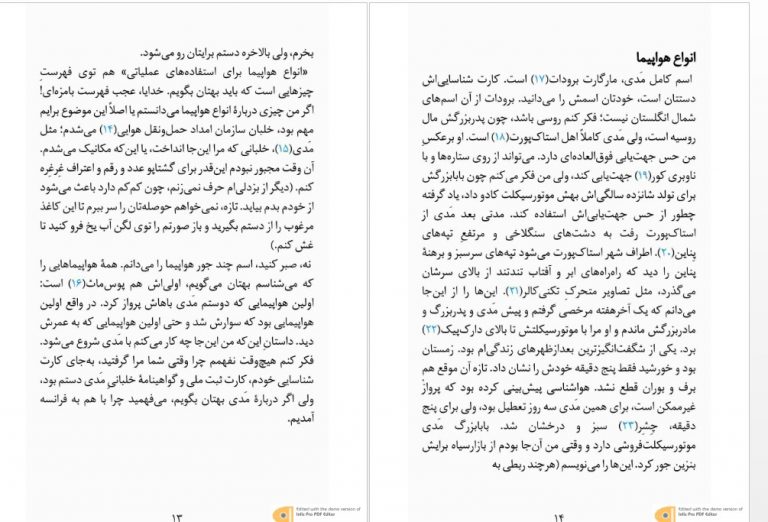 بخرم، ولی بالاخره دستم برایتان رو می‌شود.
«انواع هواپیما برای استفاده‌های عملیاتی» هم توی فهرستِ
چیزهایی است که باید بهتان بگویم. خدایا، عجب فهرست بامزه‌ای!
اگر من چیزی دربارهٔ انواع هواپیما می‌دانستم یا اصلاً این موضوع برایم
مهم بود، خلبان سازمان امداد حمل‌ونقل هوایی(۱۴) می‌شدم؛ مثل
مَدی(۱۵)، خلبانی که مرا این‌جا انداخت، یا این‌که مکانیک می‌شدم.
آن وقت مجبور نبودم این‌قدر برای گشتاپو عدد و رقم و اعتراف غِرغِره
کنم. (دیگر از بزدلی‌ام حرف نمی‌زنم، چون کم‌کم دارد باعث می‌شود
از خودم بدم بیاید. تازه، نمی‌خواهم حوصله‌تان را سر ببرم تا این کاغذ
مرغوب را از دستم بگیرید و باز صورتم را توی لگن آب یخ فرو کنید تا
غش کنم.)
نه، صبر کنید، اسم چند جور هواپیما را می‌دانم. همهٔ هواپیماهایی را
که می‌شناسم بهتان می‌گویم، اولی‌اش هم پوس‌ماث(۱۶) است:
اولین هواپیمایی که دوستم مَدی باهاش پرواز کرد. در واقع اولین
هواپیمایی بود که سوارش شد و حتی اولین هواپیمایی که به عمرش
دید. داستانِ این‌که من این‌جا چه کار می‌کنم با مَدی شروع می‌شود.
فکر کنم هیچ‌وقت نفهمم چرا وقتی شما مرا گرفتید، به‌جای کارت
شناسایی خودم، کارت ثبت ملی و گواهینامهٔ خلبانیِ مَدی دستم بود،
ولی اگر دربارهٔ مَدی بهتان بگویم، می‌فهمید چرا با هم به فرانسه
آمدیم.
۱۳
Edited with the demo version of
Infix Pro PDF Editor
انواع هواپیما
اسم کامل مَدی، مارگارت برودات(۱۷) است. کارت شناسایی‌اش
دستتان است، خودتان اسمش را می‌دانید. برودات از آن اسم‌های
شمال انگلستان نیست؛ فکر کنم روسی باشد، چون پدربزرگش مال
روسیه است، ولی مَدی کاملاً اهل استاک‌پورت(۱۸) است. او برعکسِ
من حس جهت‌یابی فوق‌العاده‌ای دارد. می‌تواند از روی ستاره‌ها و با
ناوبری کور(۱۹) جهت‌یابی کند، ولی من فکر می‌کنم چون بابابزرگش
برای تولد شانزده سالگی‌اش بهش موتورسیکلت کادو داد، یاد گرفته
چطور از حس جهت‌یابی‌اش استفاده کند. مدتی بعد مَدی از
استاک‌پورت رفت به دشت‌های سنگلاخی و مرتفعِ تپه‌های
پناین(۲۰). اطراف شهر استاک‌پورت می‌شود تپه‌های سرسبز و برهنهٔ
پناین را دید که راه‌راه‌های ابر و آفتاب تندتند از بالای سرشان
می‌گذرد، مثل تصاویر متحرکِ تکنی‌کالر(۲۱). این‌ها را از این‌جا
می‌دانم که یک آخرهفته مرخصی گرفتم و پیش مَدی و پدربزرگ و
مادربزرگش ماندم و او مرا با موتورسیکلتش تا بالای دارک‌پیک(۲۲)
برد. یکی از شگفت‌انگیزترین بعدازظهرهای زندگی‌ام بود. زمستان
بود و خورشید فقط پنج دقیقه خودش را نشان داد. تازه آن موقع هم
برف و بوران قطع نشد. هواشناسی پیش‌بینی کرده بود که پرواز
غیرممکن است، برای همین مَدی سه روز تعطیل بود، ولی برای پنج
دقیقه، چِشِر(۲۳) سبز و درخشان شد. بابابزرگ مَدی
موتورسیکلت‌فروشی دارد و وقتی من آن‌جا بودم از بازارسیاه برایش
بنزین جور کرد. این‌ها را می‌نویسم (هرچند ربطی به
۱۴
Edited with the demo version of
Infix Pro PDF Editor